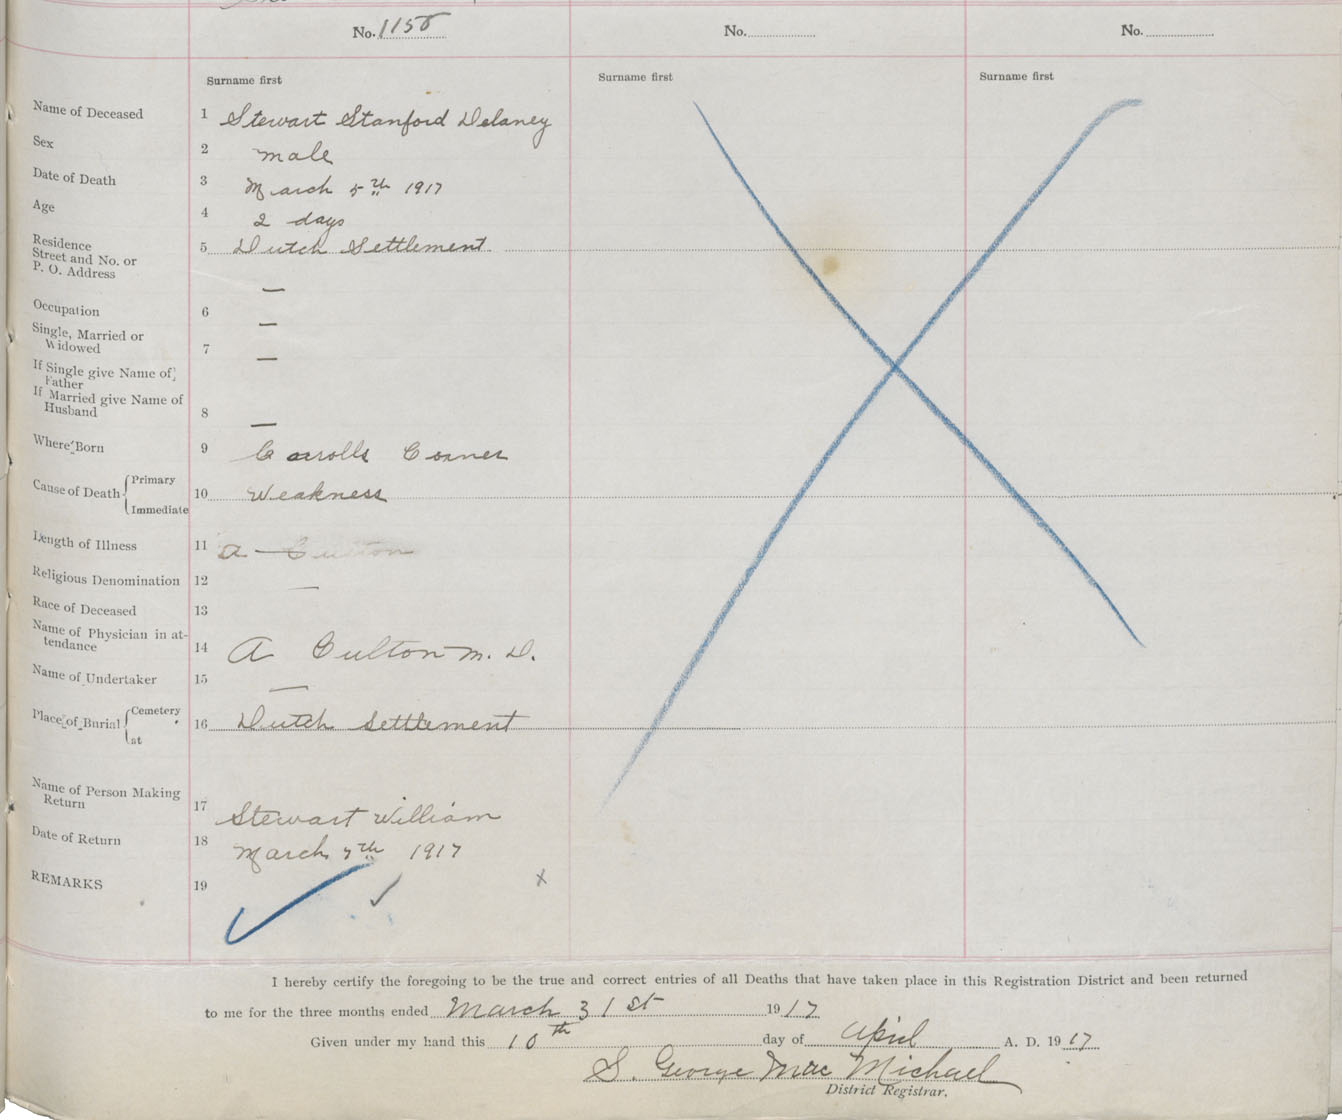 No. 1158
No.
No.
Surname first
Surname first
Surname first
Name of Deceased 1 Stewart Stanford Delaney
Sex 2 male
Date of Death 3 March 5th 1917
Age 4 2 days
Residence
Street and No. or
P. O. Address
5 Dutch Settlement
—
Occupation 6 —
Single, Married or
Widowed
7 —
If Single give Name of
Father
If Married give Name of
Husband
8 —
Where Born 9 Carrolls Corner
Cause of Death { Primary
Immediate
10 Weakness
Length of Illness 11 A — Culton
Religious Denomination 12 —
Race of Deceased 13
Name of Physician in at-
tendance
14 A Culton M. D.
Name of Undertaker 15 —
Place of Burial { Cemetery
at
16 Dutch Settlement
Name of Person Making
Return
17 Stewart William
Date of Return 18 March 7th 1917
REMARKS 19
x
I hereby certify the foregoing to be the true and correct entries of all Deaths that have taken place in this Registration District and been returned
to me for the three months ended March 31st 1917
Given under my hand this 10th day of April A. D. 1917
S. George MacMichael
District Registrar.